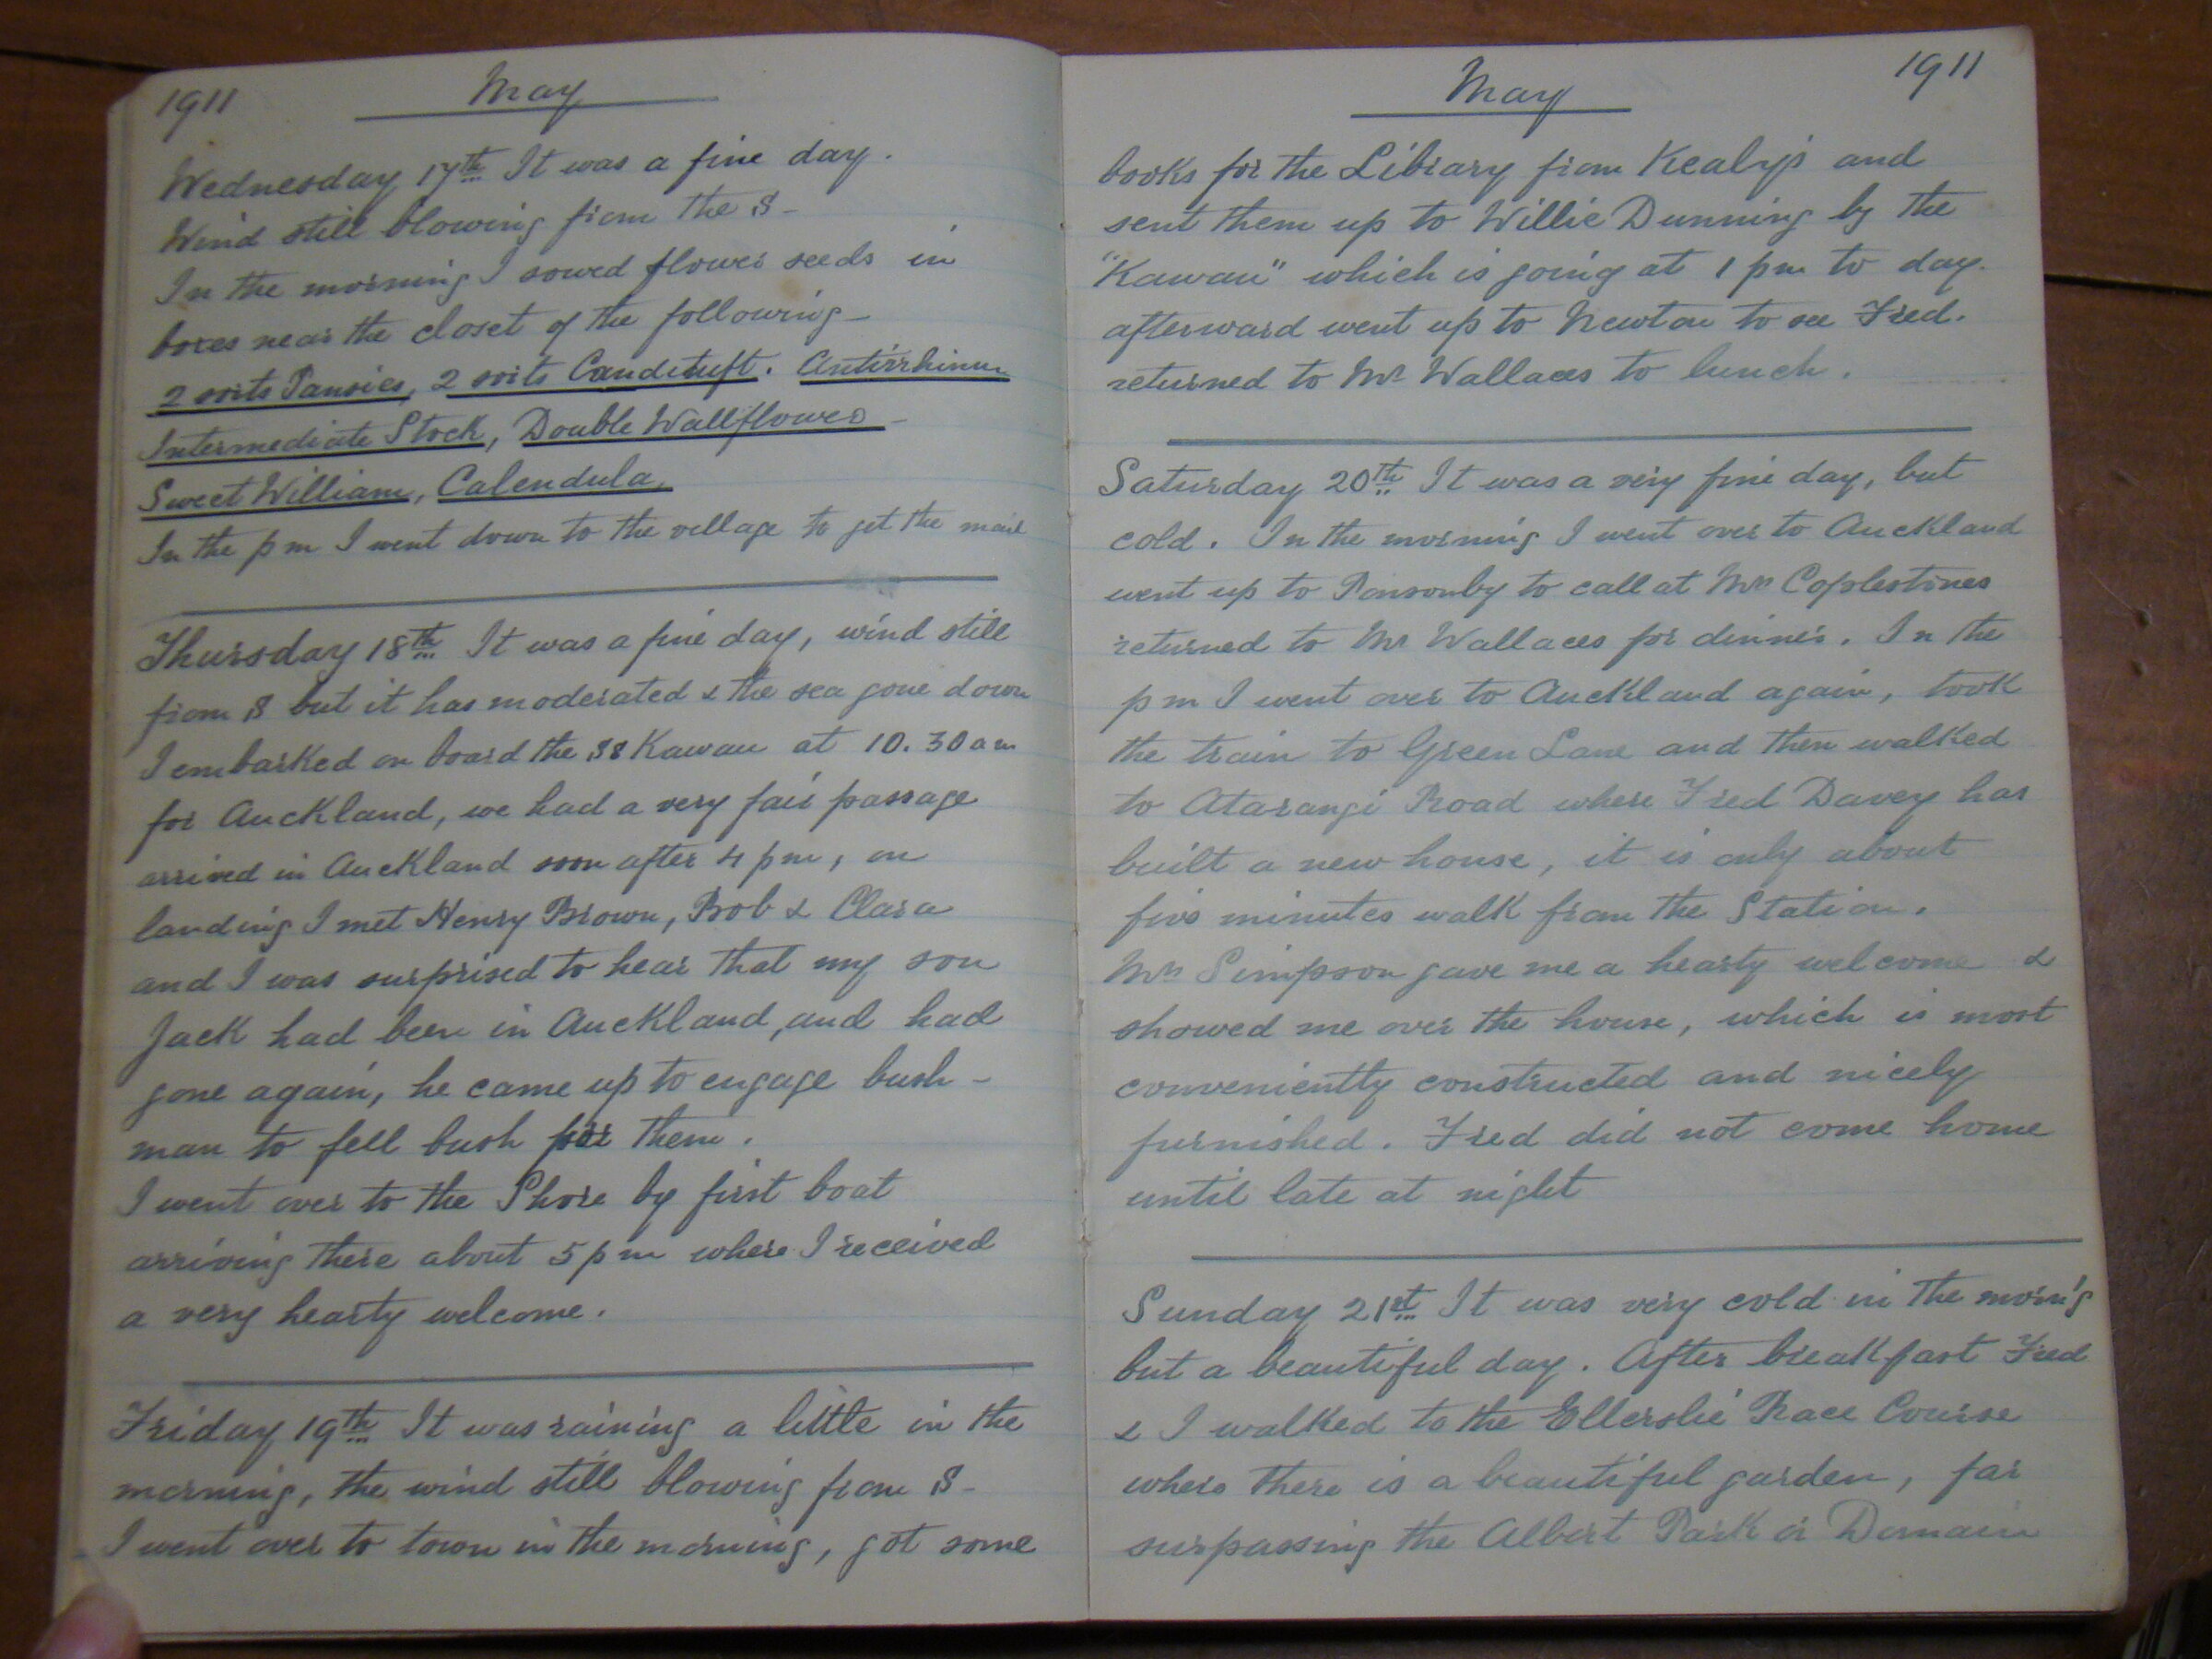 1911 May
Wednesday 17th It was a fine day.
Wind still blowing from the S-
In the morning I sowed flower seeds in
boxes near the closet of the following-
2 sorts Pansies, 2 sorts Candituft. Antirrhinum
Intermediate Stock, Double Wallflower-
Sweet William, Calendula.
In the pm I went down to the village to get the mail
Thursday 18th It was a fine day, wind still
from S but it has moderated & the sea gone down
I embarked on board the SS Kawau at 10.30 am
for Auckland, we had a very fair passage
arrived in Auckland soon after 4 pm, on
landing I met Henry Brown, Bob & Clara
and I was surprised to hear that my son
Jack had been in Auckland, and had
gone again, he came up to engage bush-
man to fell bush for them.
I went over to the Shore by first boat
arriving there about 5 pm where I received
a very hearty welcome.
Friday 19th It was raining a little in the
morning, the wind still blowing from S-
I went over to town in the morning, got some
May 1911
books for the Library from Kealy's and
sent them up to Willie Dunning by the
"Kawau" which is going at 1 pm to day.
afterward went up to Newton to see Fred.
returned to Mr Wallaces to lunch.
Saturday 20th It was a very fine day, but
cold. In the morning I went over to Auckland
went up to Ponsonby to call at Mrs Coplestones
returned to Mr Wallaces for dinner. In the
pm I went over to Auckland again, took
the train to Green Lane and then walked
to Atarangi Road where Fred Davey has
built a new house, it is only about
five minutes walk from the Station.
Mrs Simpson gave me a hearty welcome &
showed me over the house, which is most
conveniently constructed and nicely
furnished. Fred did not come home
until late at night
Sunday 21st It was very cold in the morn'g
but a beautiful day. After breakfast Fred
& I walked to the Ellerslie Race Course
where there is a beautiful garden, far
surpassing the Albert Park or Domain